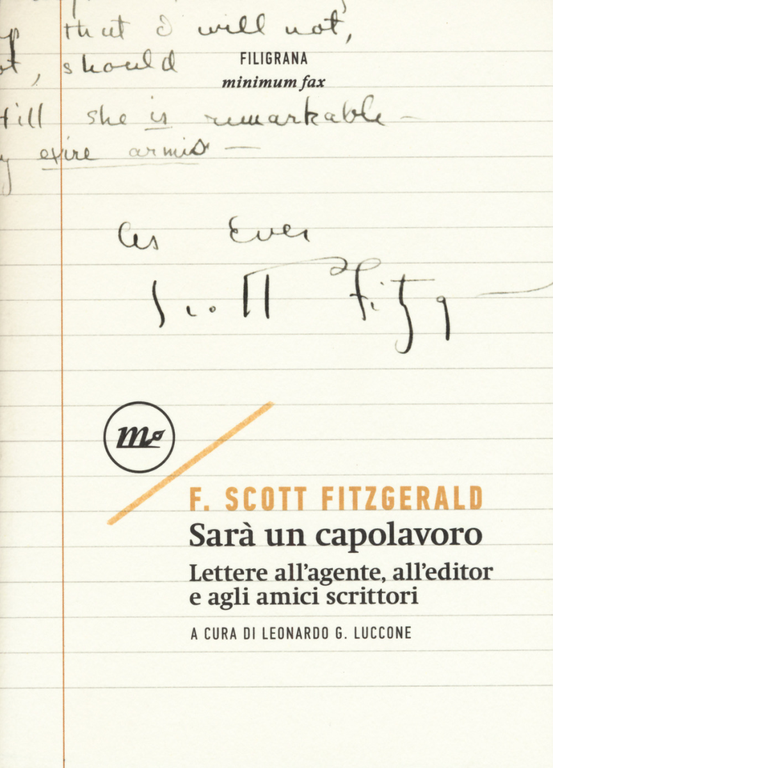 that I will not,
, should
FILIGRANA
minimum fax
still she is remarkable —
As Ever
Scott Fitzg
m
F. SCOTT FITZGERALD
Sarà un capolavoro
Lettere all'agente, all'editor
e agli amici scrittori
A CURA DI LEONARDO G. LUCCONE